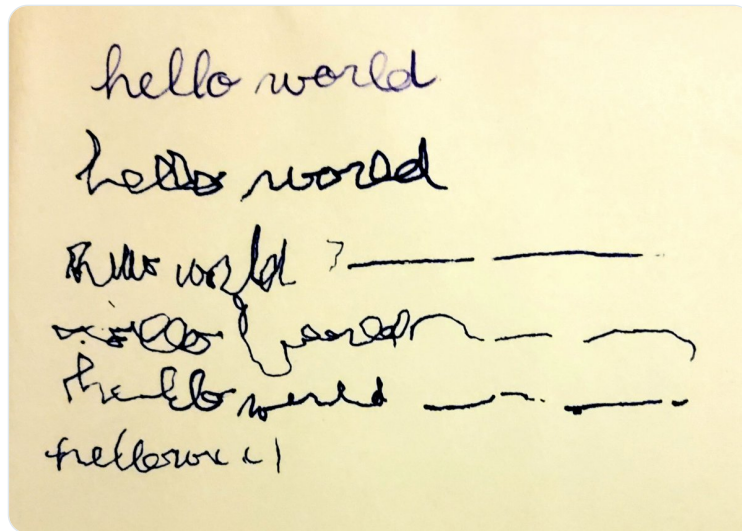 hello world
hello world
hello world
hello world
hello world